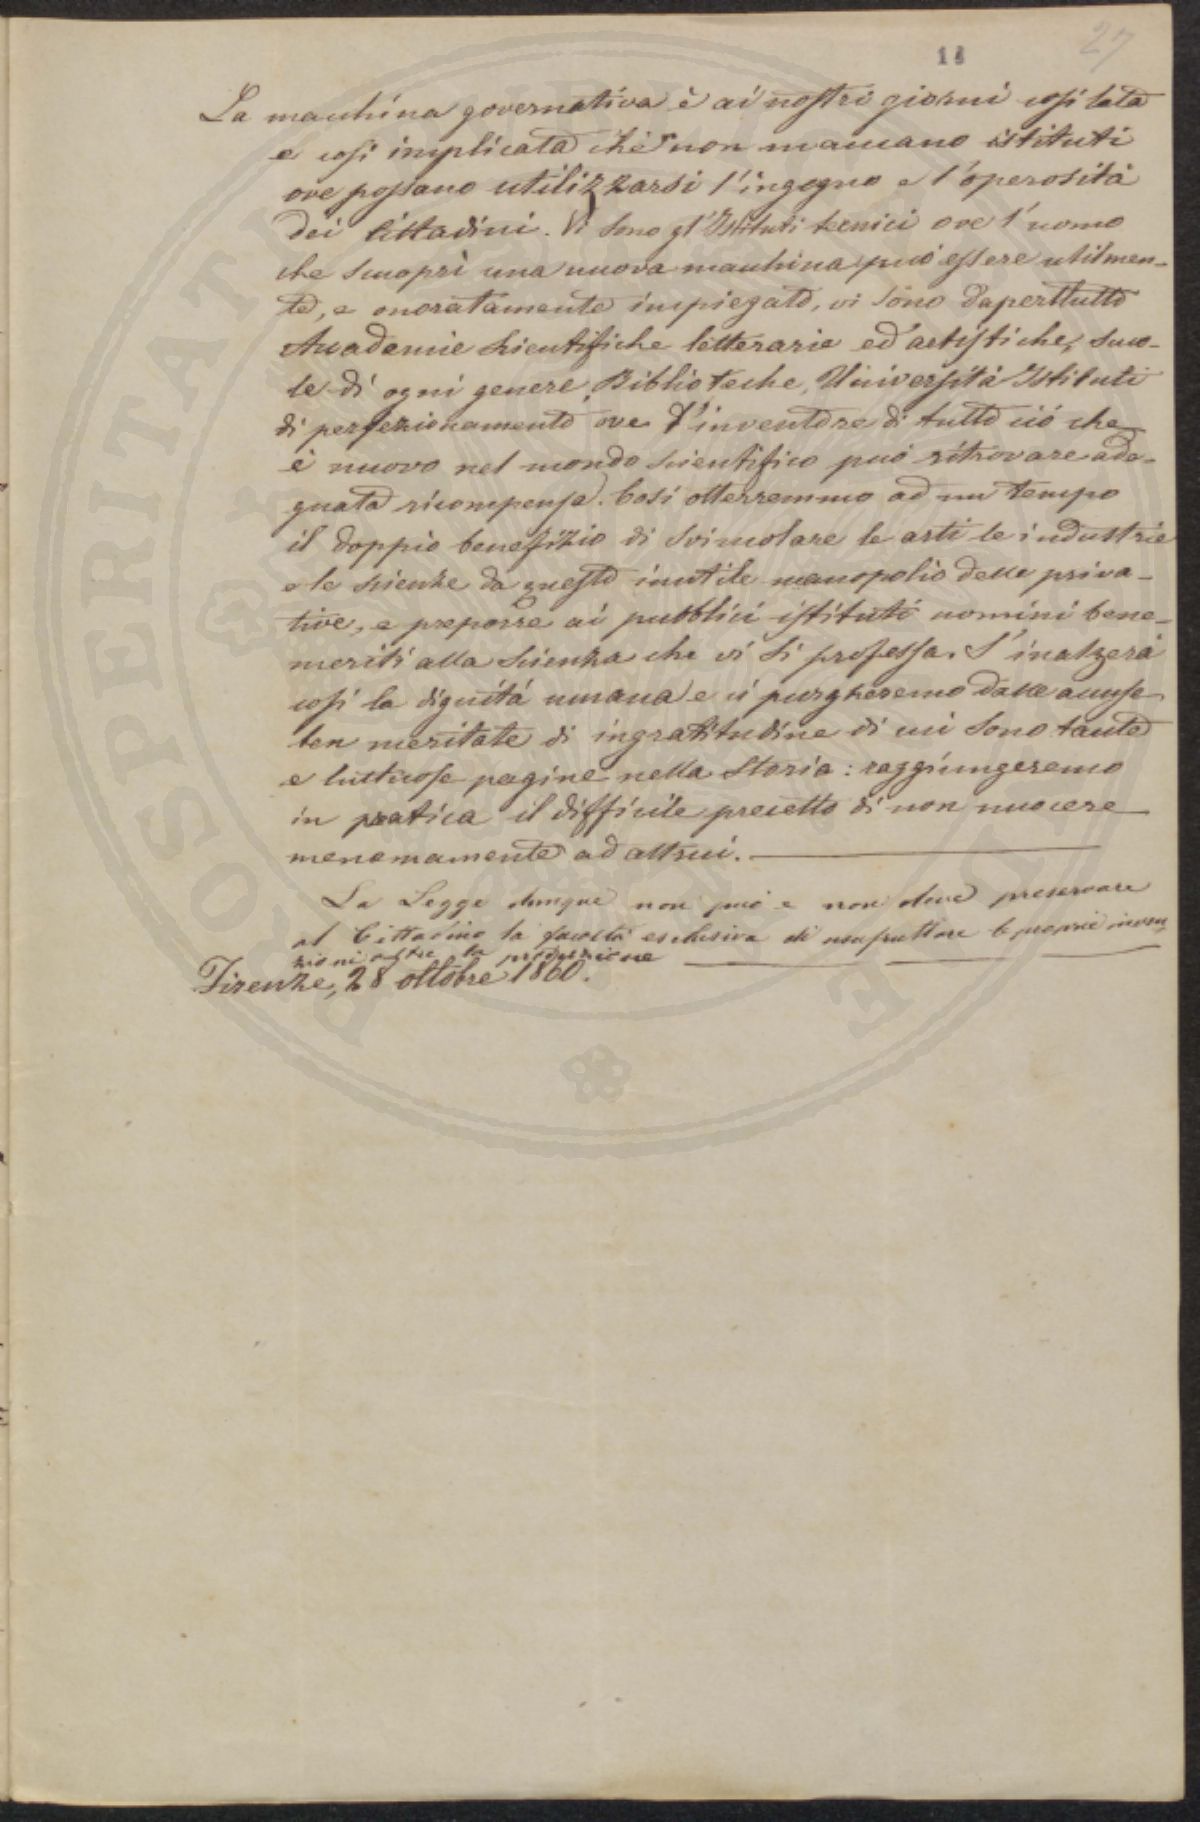 14
27
La macchina governativa è ai nostri giorni così lata
e così implicata che non mancano istituti
ove possano utilizzarsi l'ingegno e l'operosità
dei Cittadini. Vi sono gl'Istituti tecnici ove l'uomo
che scuoprì una nuova macchina può essere utilmen-
te, e onoratamente impiegato, vi sono dapertutto
Accademie scientifiche letterarie ed artistiche, scuo-
le di ogni genere, Biblioteche, Università Istituti
di perfezionamento ove l'inventore di tutto ciò che
è nuovo nel mondo scientifico può ritrovare ade-
guata ricompensa. Così otterremmo ad un tempo
il doppio benefizio di svincolare le arti le industrie
e le scienze da questo inutile monopolio delle priva-
tive, e preporre ai pubblici istituti uomini bene-
meriti alla scienza che vi si professa. S'inalzerà
così la dignità umana e ci purgheremo dalle accuse
ben meritate di ingratitudine di cui sono tante
e luttuose pagine nella Storia: raggiungeremo
in pratica il difficile precetto di non nuocere
menomamente ad altrui.
La Legge dunque non può e non deve preservare
al Cittadino la facoltà esclusiva di usufruttare le proprie inven-
zioni oltre la produzione
Firenze, 28 ottobre 1860.
PROSPERITATI